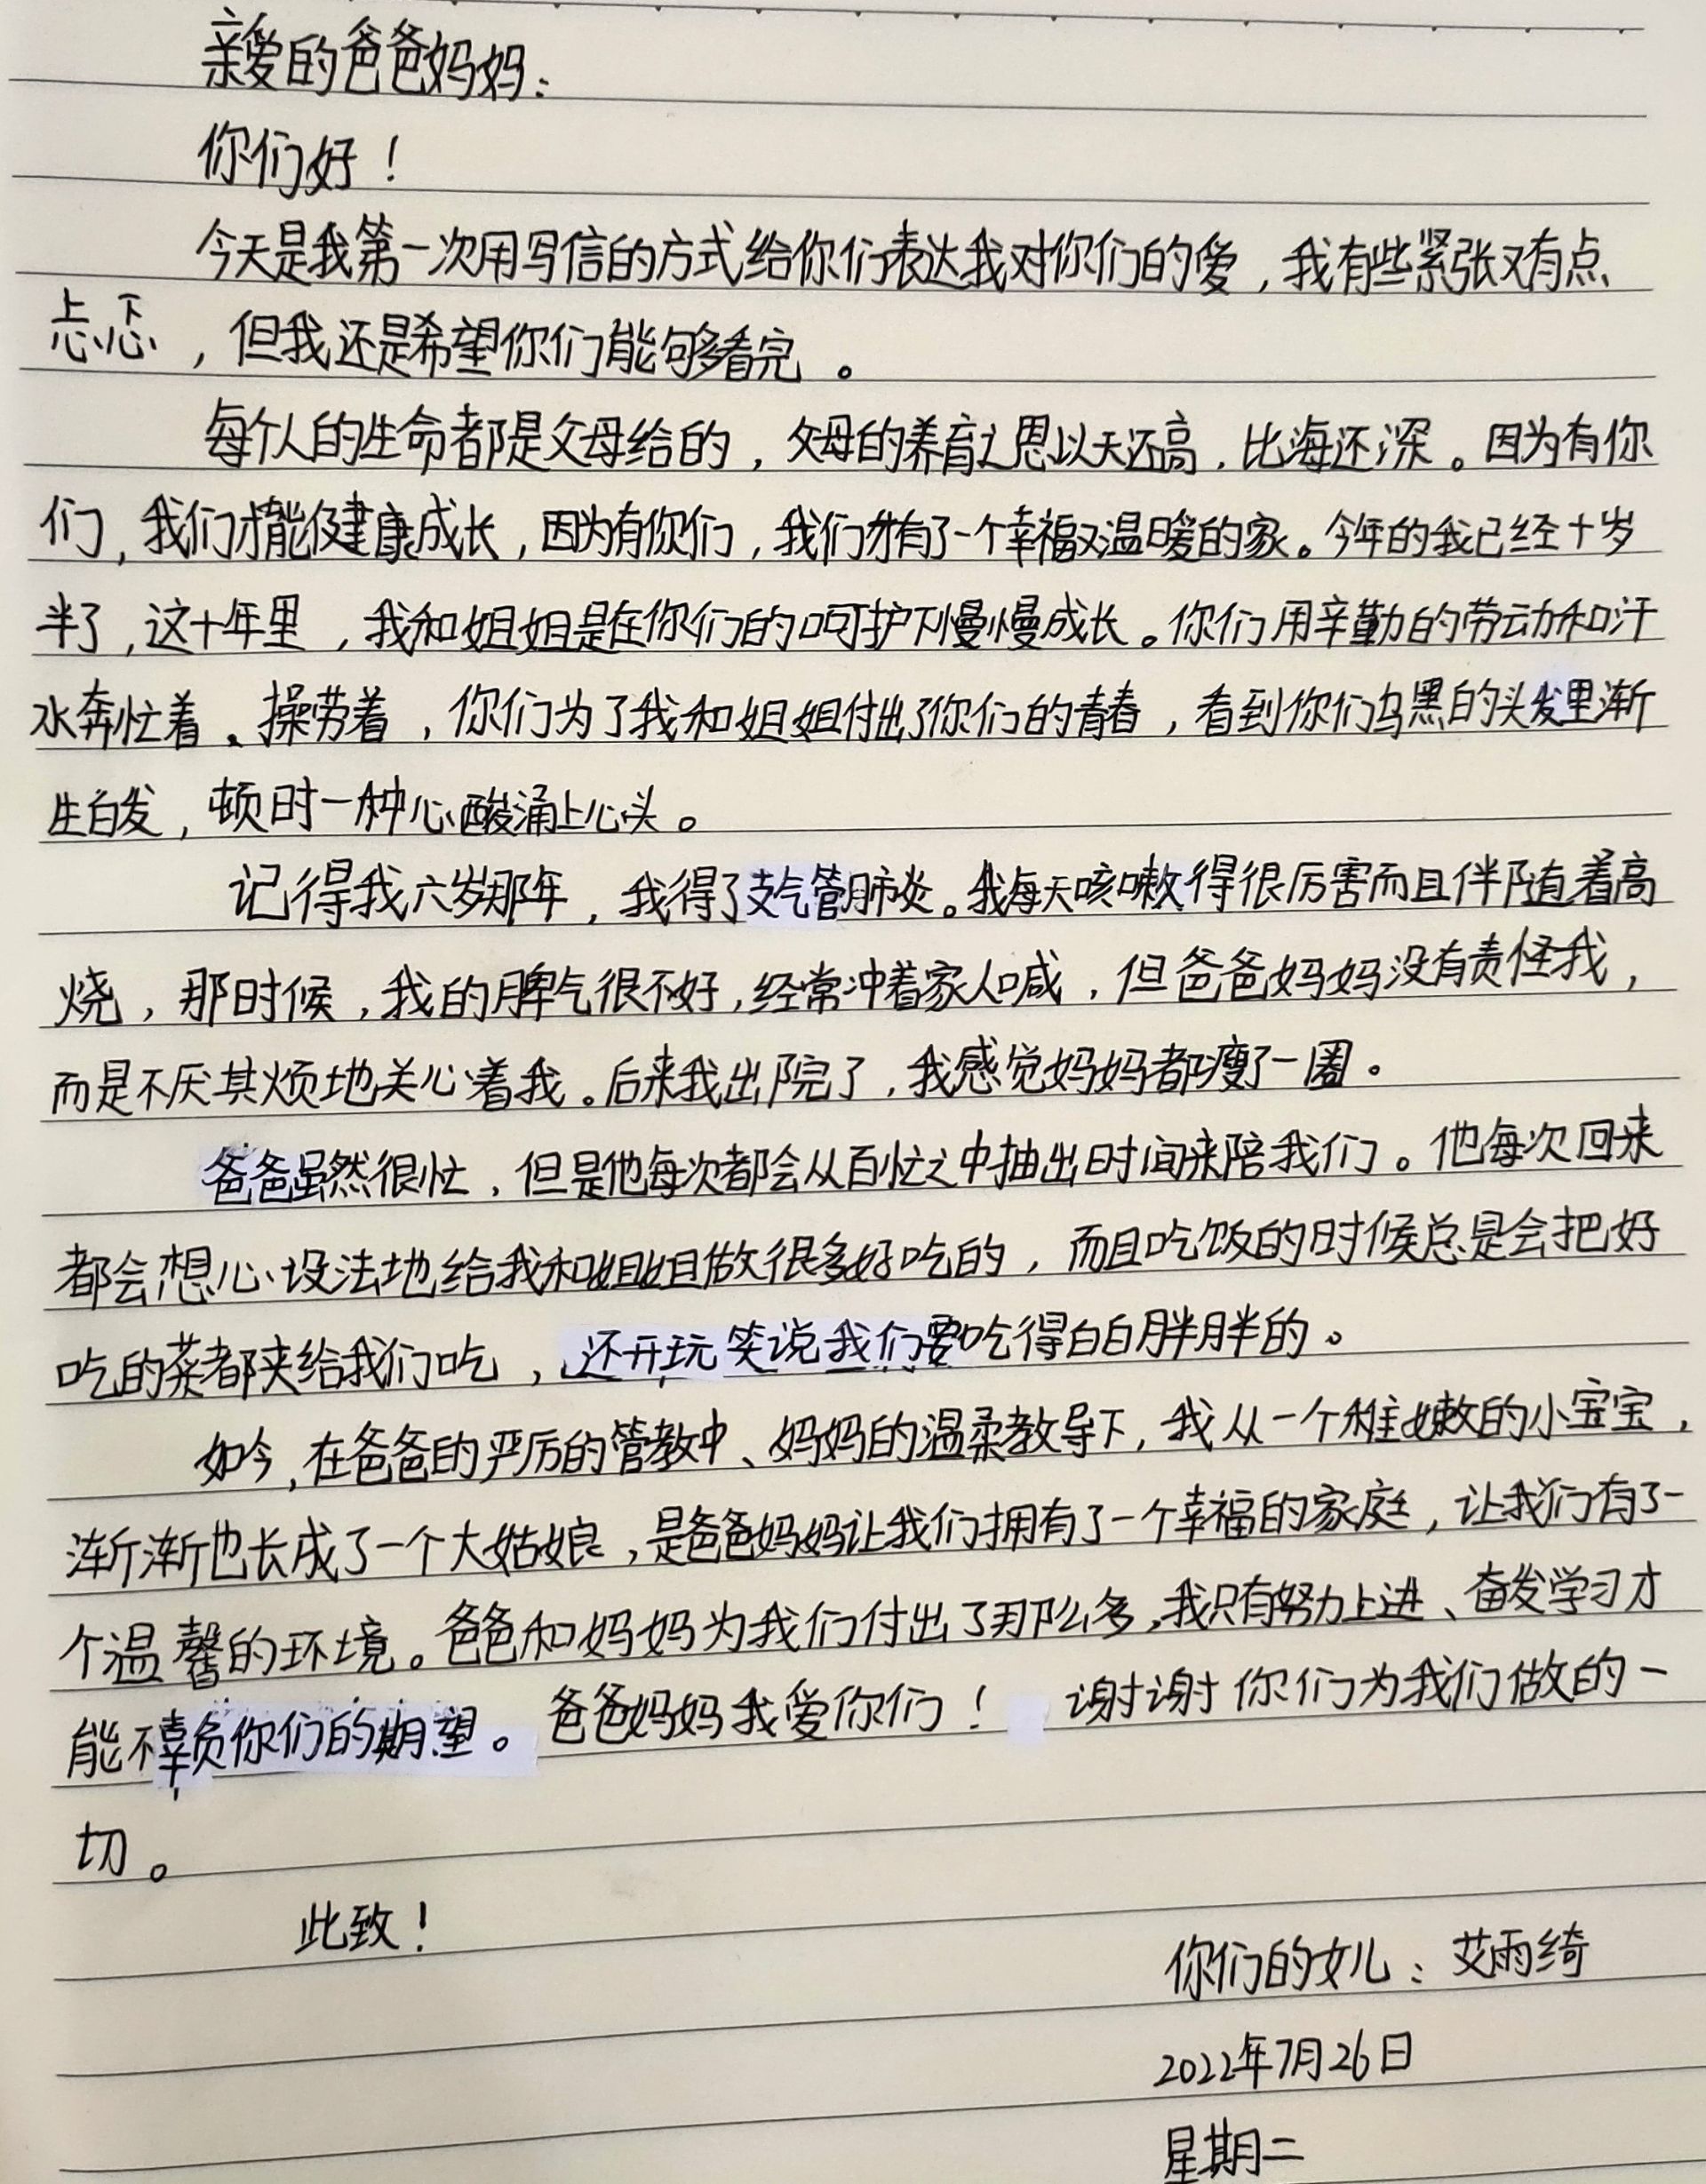 亲爱的爸爸妈妈：
你们好！
今天是我第一次用写信的方式给你们表达我对你们的爱，我有些紧张又有点
忐忑，但我还是希望你们能够看完。
每个人的生命都是父母给的，父母的养育之恩以天还高，比海还深。因为有你
们，我们才能健康成长，因为有你们，我们才有了一个幸福又温暖的家。今年的我已经十岁
半了，这十年里，我和姐姐是在你们的呵护下慢慢成长。你们用辛勤的劳动和汗
水奔忙着、操劳着，你们为了我和姐姐付出了你们的青春，看到你们乌黑的头发里渐
生白发，顿时一种心酸涌上心头。
记得我六岁那年，我得了支气管肺炎。我每天咳嗽得很厉害而且伴随着高
烧，那时候，我的脾气很不好，经常冲着家人喊，但爸爸妈妈没有责怪我，
而是不厌其烦地关心着我。后来我出院了，我感觉妈妈都瘦了一圈。
爸爸虽然很忙，但是他每次都会从百忙之中抽出时间来陪我们。他每次回来
都会想心设法地给我和姐姐做很多好吃的，而且吃饭的时候总是会把好
吃的菜都夹给我们吃，还开玩笑说我们要吃得白白胖胖的。
如今，在爸爸的严厉的管教中、妈妈的温柔教导下，我从一个稚嫩的小宝宝，
渐渐也长成了一个大姑娘，是爸爸妈妈让我们拥有了一个幸福的家庭，让我们有了一
个温馨的环境。爸爸和妈妈为我们付出了那么多，我只有努力上进、奋发学习才
能不辜负你们的期望。爸爸妈妈我爱你们！谢谢你们为我们做的一
切。
此致！
你们的女儿：艾雨绮
2022年7月26日
星期二